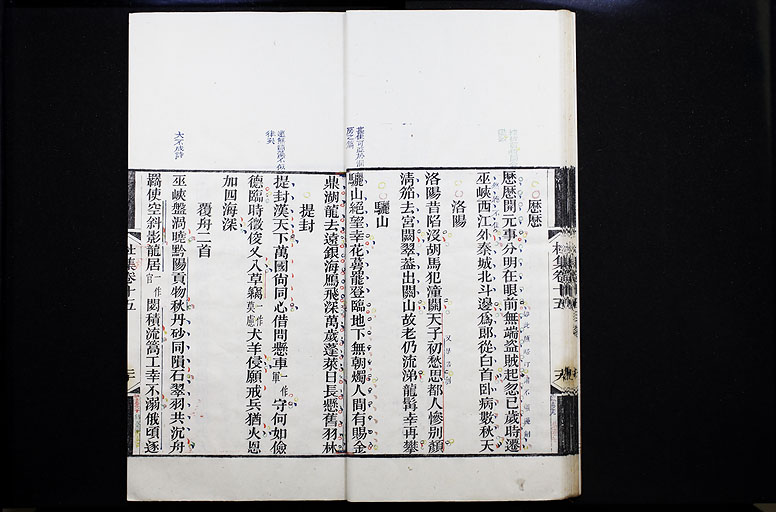 歷歷
歷歷開元事分明在眼前無端盜賊起忽已歲時遷
巫峽西江外秦城北斗邊爲郎從白首臥病數秋天
洛陽
洛陽昔陷沒胡馬犯潼關天子初愁思都人慘別顏
清笳去宮闕翠蓋出關山故老仍流涕龍髯幸再攀
驪山
驪山絕望幸花萼罷登臨地下無朝燭人間有賜金
鼎湖龍去遠銀海鴈飛深萬歲蓬萊日長懸舊羽林
提封
提封漢天下萬國尚同心借問懸車一作軍守何如儉
德臨時徵俊乂入草竊一作莫慮犬羊侵願戒兵猶火恩
加四海深
覆舟二首
巫峽盤渦曉黔陽貢物秋丹砂同隕石翠羽共沉舟
羈使空斜影龍居一作宫閟積流篙工幸不溺俄頃逐
杜集卷十五